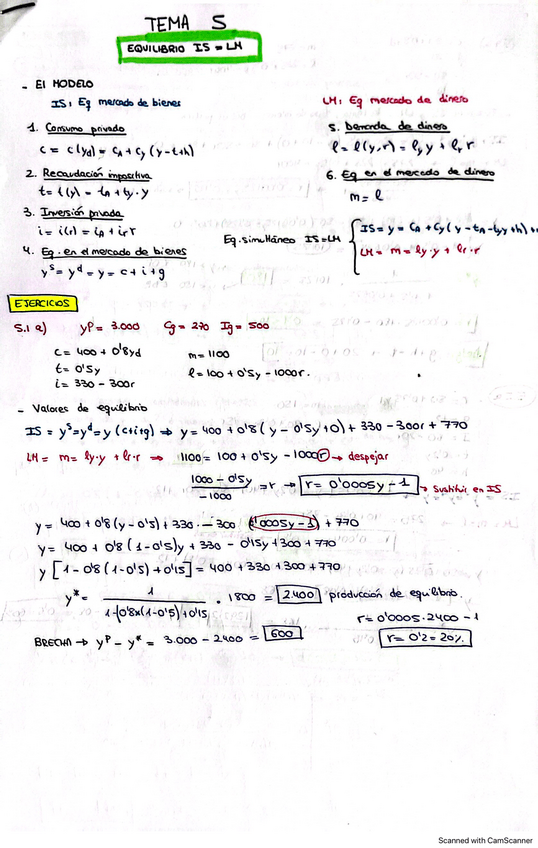 TEMA 5
EQUILIBRIO IS = LM
- El MODELO
IS: Eq mercado de bienes
1. Consumo privado
c = c(yd) = cA + cy (y - t + h)
2. Recaudación impositiva
t = t(y) = tA + ty · y
3. Inversión privada
i = i(r) = iA + ir r
4. Eq. en el mercado de bienes
yˢ = yᵈ = y = c + i + g
LM: Eq mercado de dinero
5. Demanda de dinero
l = l(y, r) = ly y + lr r
6. Eq en el mercado de dinero
m = l
Eq. simultáneo IS = LM
IS = y = cA + cy (y - tA - ty y + h) +
LM = m = ly · y + lr · r
EJERCICIOS
5.1 a) yP = 3.000 Cg = 270 Ig = 500
c = 400 + 0'8yd
t = 0'5y
i = 330 - 300r
m = 1100
l = 100 + 0'5y - 1000r.
- Valores de equilibrio
IS = yˢ = yᵈ = y (c+i+g) ⇒ y = 400 + 0'8 (y - 0'5y + 0) + 330 - 300r + 770
LM = m = ly · y + lr · r ⇒ 1100 = 100 + 0'5y - 1000r → despejar
1000 - 0'5y / -1000 = r → r = 0'0005y - 1 → sustituir en IS
y = 400 + 0'8 (y - 0'5) + 330 - 300 (0'0005y - 1) + 770
y = 400 + 0'8 (1 - 0'5)y + 330 - 0'15y + 300 + 770
y [1 - 0'8 (1 - 0'5) + 0'15] = 400 + 330 + 300 + 770
y* = 1 / 1 - (0'8x(1-0'5) + 0'15 . 1800 = 2400 producción de equilibrio.
r = 0'0005 · 2400 - 1
r = 0'2 = 20%
BRECHA → yP - y* = 3.000 - 2400 = 600
Scanned with CamScanner